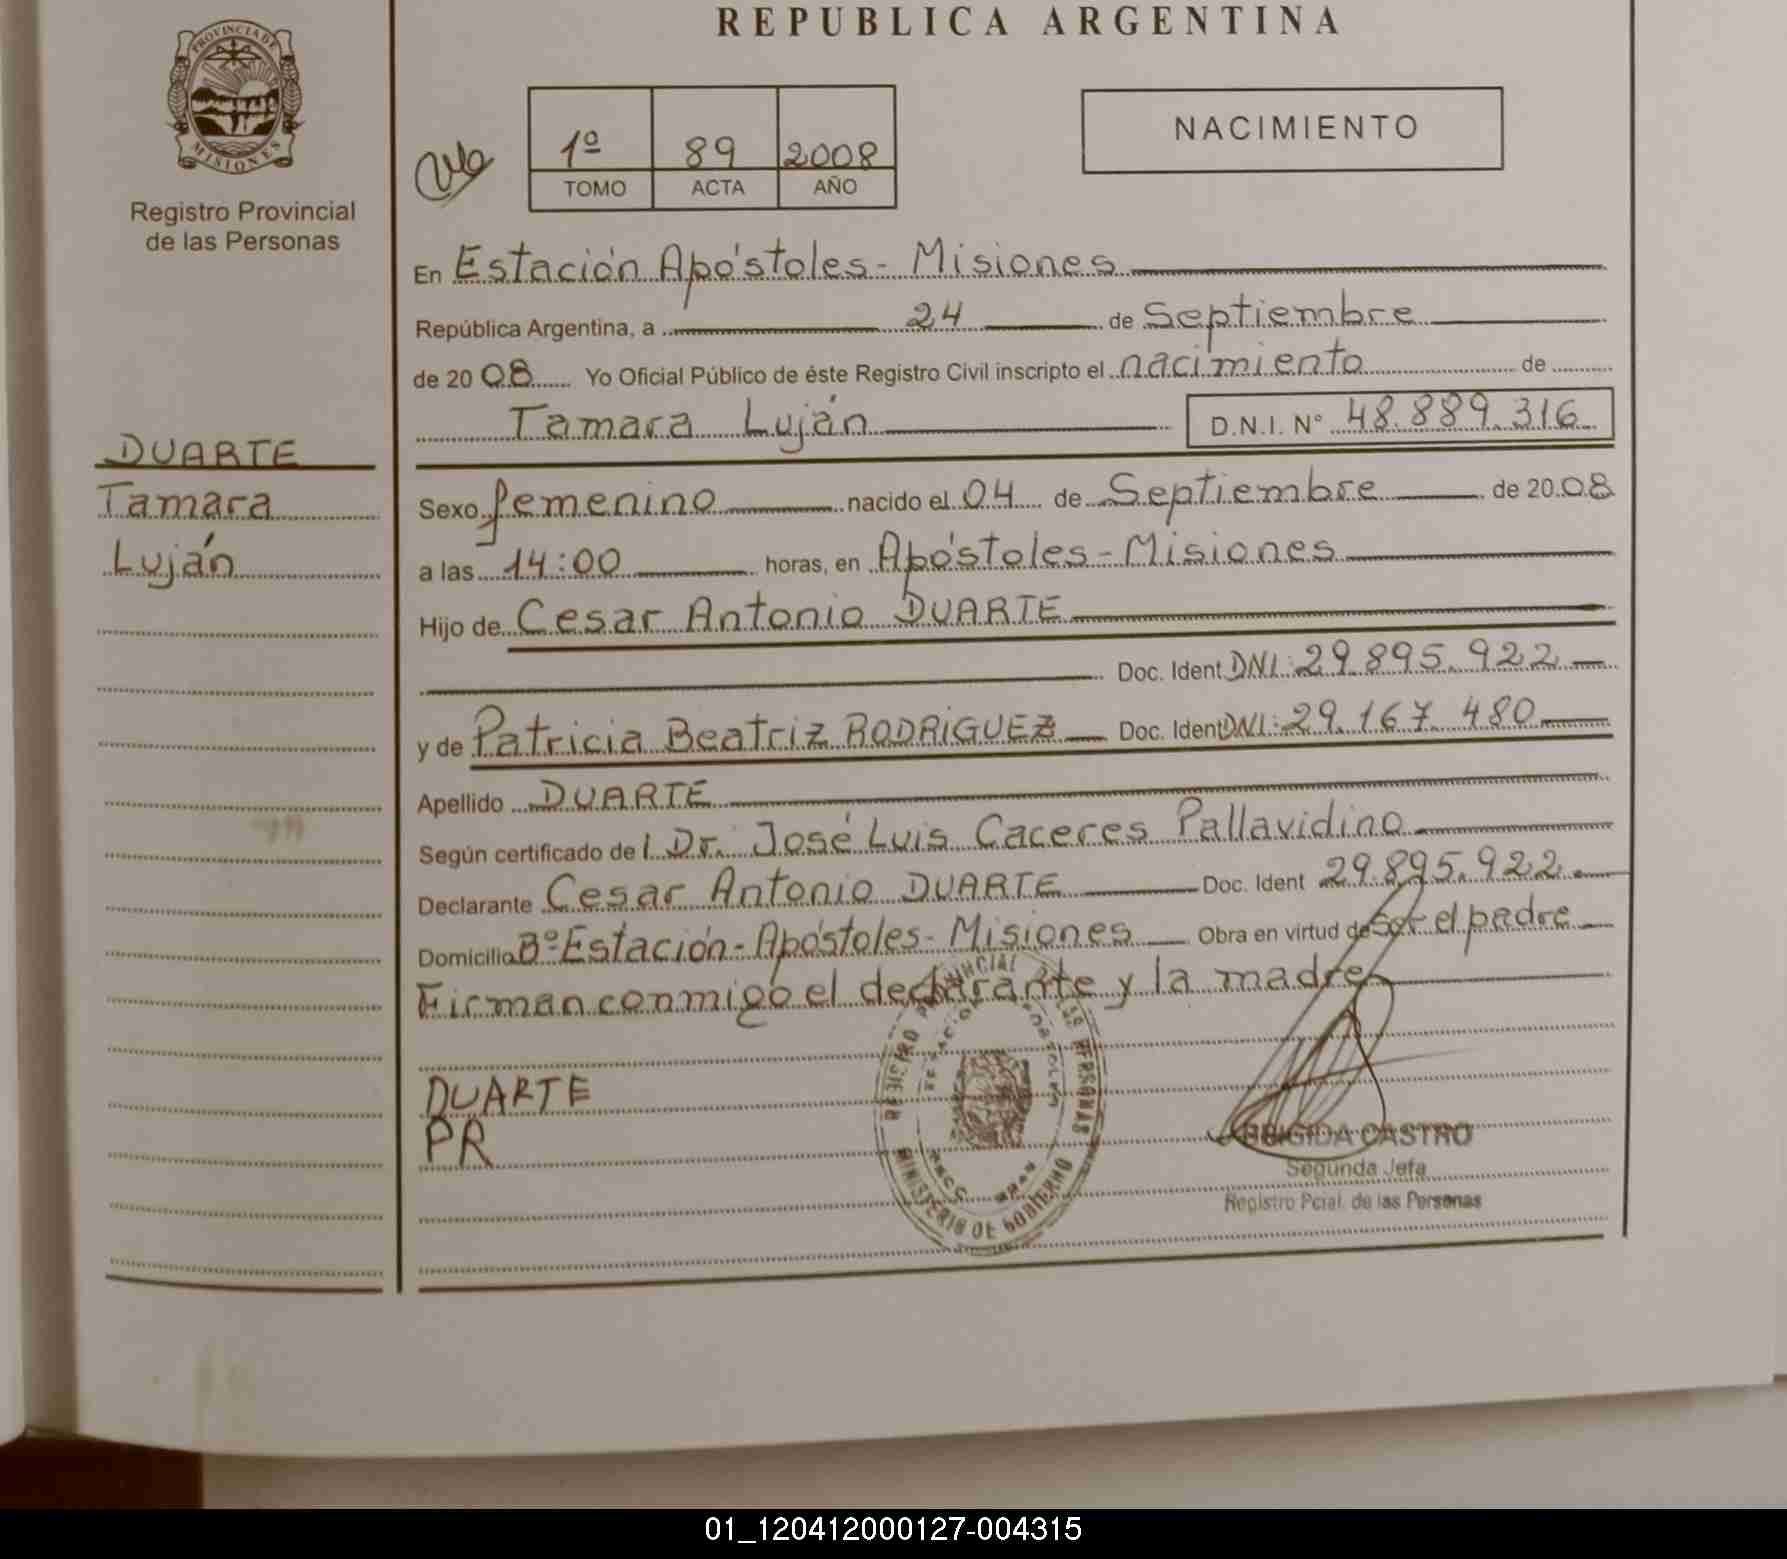 REPUBLICA ARGENTINA
PROVINCIA DE MISIONES
Registro Provincial
de las Personas
1º 89 2008
TOMO ACTA AÑO
NACIMIENTO
En Estación Apóstoles - Misiones
República Argentina, a 24 de Septiembre
de 2008 Yo Oficial Público de éste Registro Civil inscripto el nacimiento de
Tamara Luján D.N.I. Nº 48.889.316
DUARTE
Tamara
Luján
Sexo femenino nacido el 04 de Septiembre de 2008
a las 14:00 horas, en Apóstoles - Misiones
Hijo de Cesar Antonio DUARTE
Doc. Ident DNI: 29.895.922
y de Patricia Beatriz RODRIGUEZ Doc. Ident DNI: 29.167.480
Apellido DUARTE
Según certificado del Dr. José Luis Caceres Pallavidino
Declarante Cesar Antonio DUARTE Doc. Ident 29.895.922
Domicilio Bº Estación - Apóstoles - Misiones Obra en virtud de Ser el padre
Firman conmigo el declarante y la madre
DUARTE
PR
REGISTRO PROVINCIAL DE LAS PERSONAS
MINISTERIO DE GOBIERNO
BRIGIDA CASTRO
Segunda Jefa
Registro Pcial. de las Personas
01_120412000127-004315